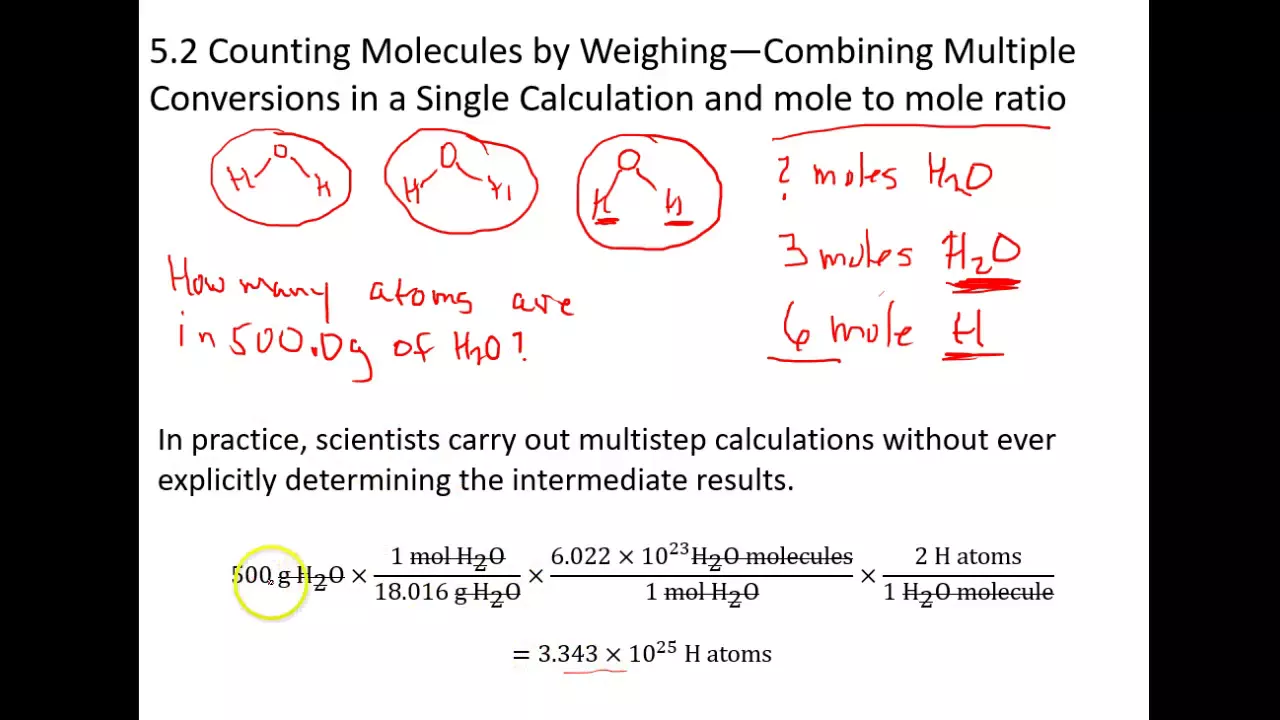 5.2 Counting Molecules by Weighing—Combining Multiple
Conversions in a Single Calculation and mole to mole ratio
O O O
H H H H H H
? moles H₂O
3 moles H₂O
6 mole H
How many atoms are
in 500.0g of H₂O?
In practice, scientists carry out multistep calculations without ever
explicitly determining the intermediate results.
500 g H₂O × 1 mol H₂O / 18.016 g H₂O × 6.022 × 10²³ H₂O molecules / 1 mol H₂O × 2 H atoms / 1 H₂O molecule
= 3.343 × 10²⁵ H atoms